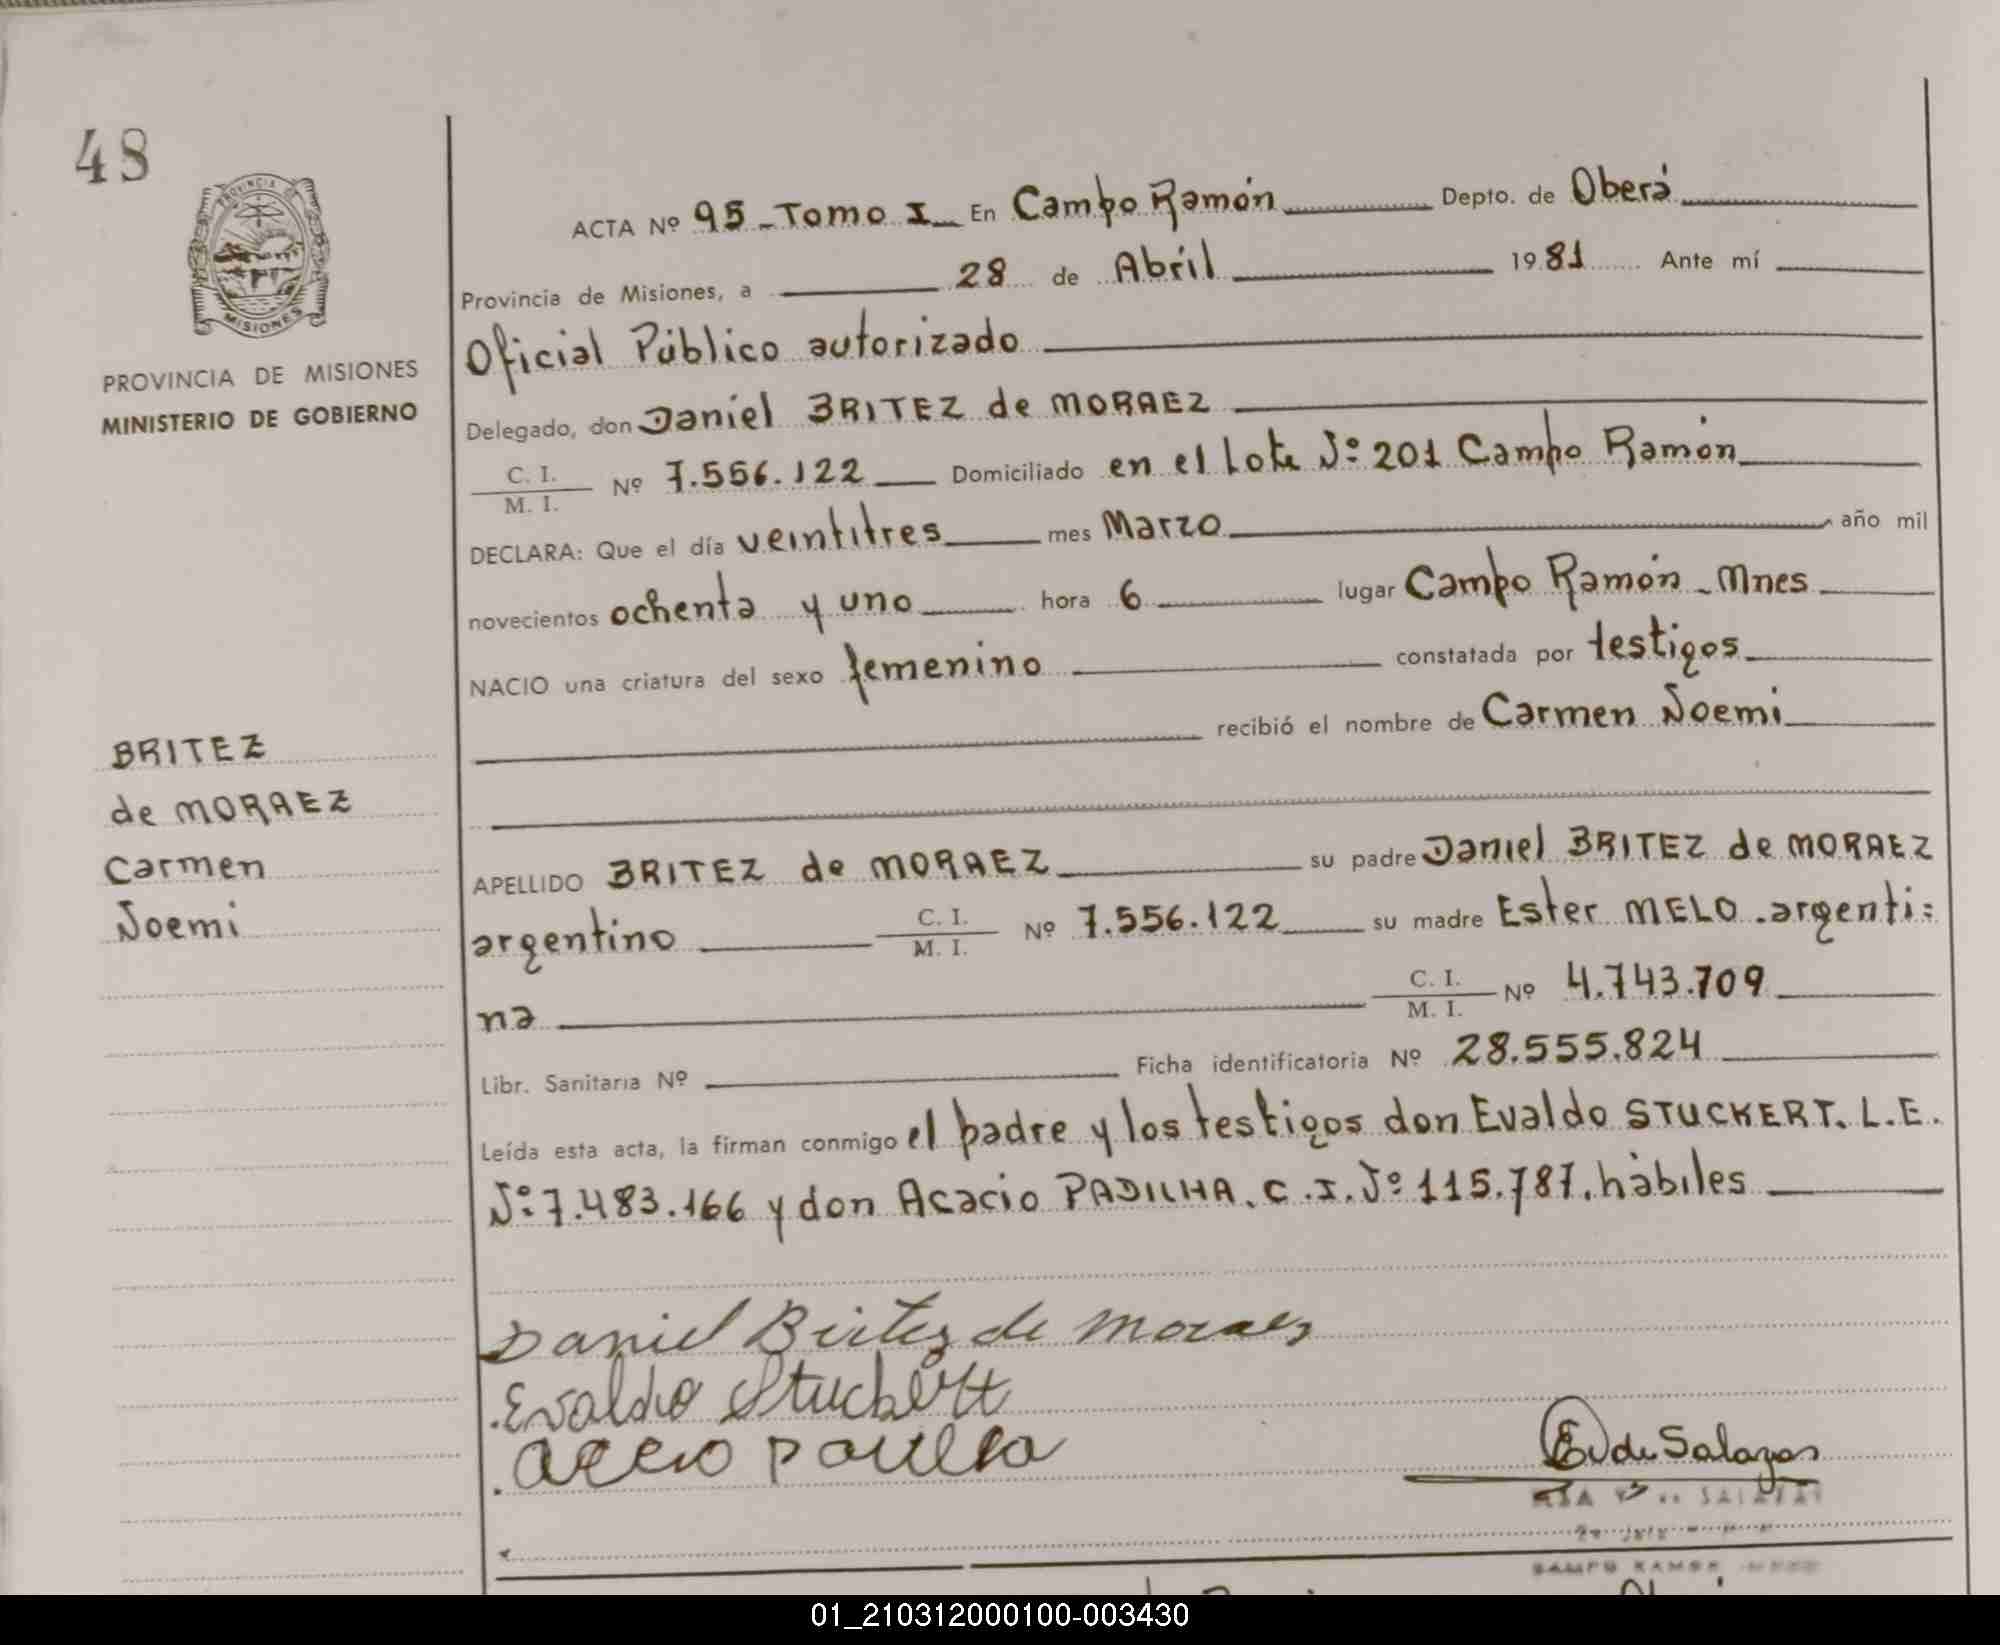 48
PROVINCIA DE
MISIONES
PROVINCIA DE MISIONES
MINISTERIO DE GOBIERNO
ACTA Nº 95 - Tomo I En Campo Ramón Depto. de Oberá
Provincia de Misiones, a 28 de Abril 1981 Ante mí
Oficial Público autorizado
Delegado, don Daniel BRITEZ de MORAEZ
C. I.
M. I. Nº 7.556.122 Domiciliado en el Lote Nº 201 Campo Ramón
DECLARA: Que el día veintitres mes Marzo año mil
novecientos ochenta y uno hora 6 lugar Campo Ramón - Mnes
NACIO una criatura del sexo femenino constatada por testigos
recibió el nombre de Carmen Noemi
BRITEZ
de MORAEZ
Carmen
Noemi
APELLIDO BRITEZ de MORAEZ su padre Daniel BRITEZ de MORAEZ
argentino C. I.
M. I. Nº 7.556.122 su madre Ester MELO. argenti=
na C. I.
M. I. Nº 4.743.709
Libr. Sanitaria Nº Ficha identificatoria Nº 28.555.824
Leída esta acta, la firman conmigo el padre y los testigos don Evaldo STUCKERT. L.E.
Nº 7.483.166 y don Acacio PADILHA. C.I. Nº 115.787. hàbiles
Daniel Britez de Moraez
Evaldo Stuckert
E V de Salazar
DE SALAZAR
CAMPO RAMON
01_210312000100-003430